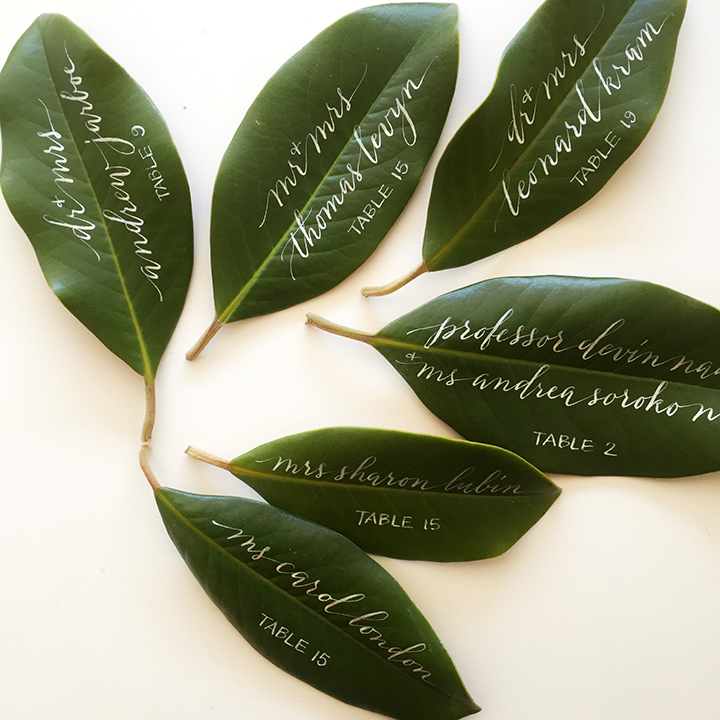 dr & mrs
andrew jarboe
TABLE 9
mr & mrs
thomas levyn
TABLE 15
dr & mrs
leonard kram
TABLE 19
professor devin
& ms andrea
TABLE 2
mrs sharon lubin
TABLE 15
ms carol london
TABLE 15